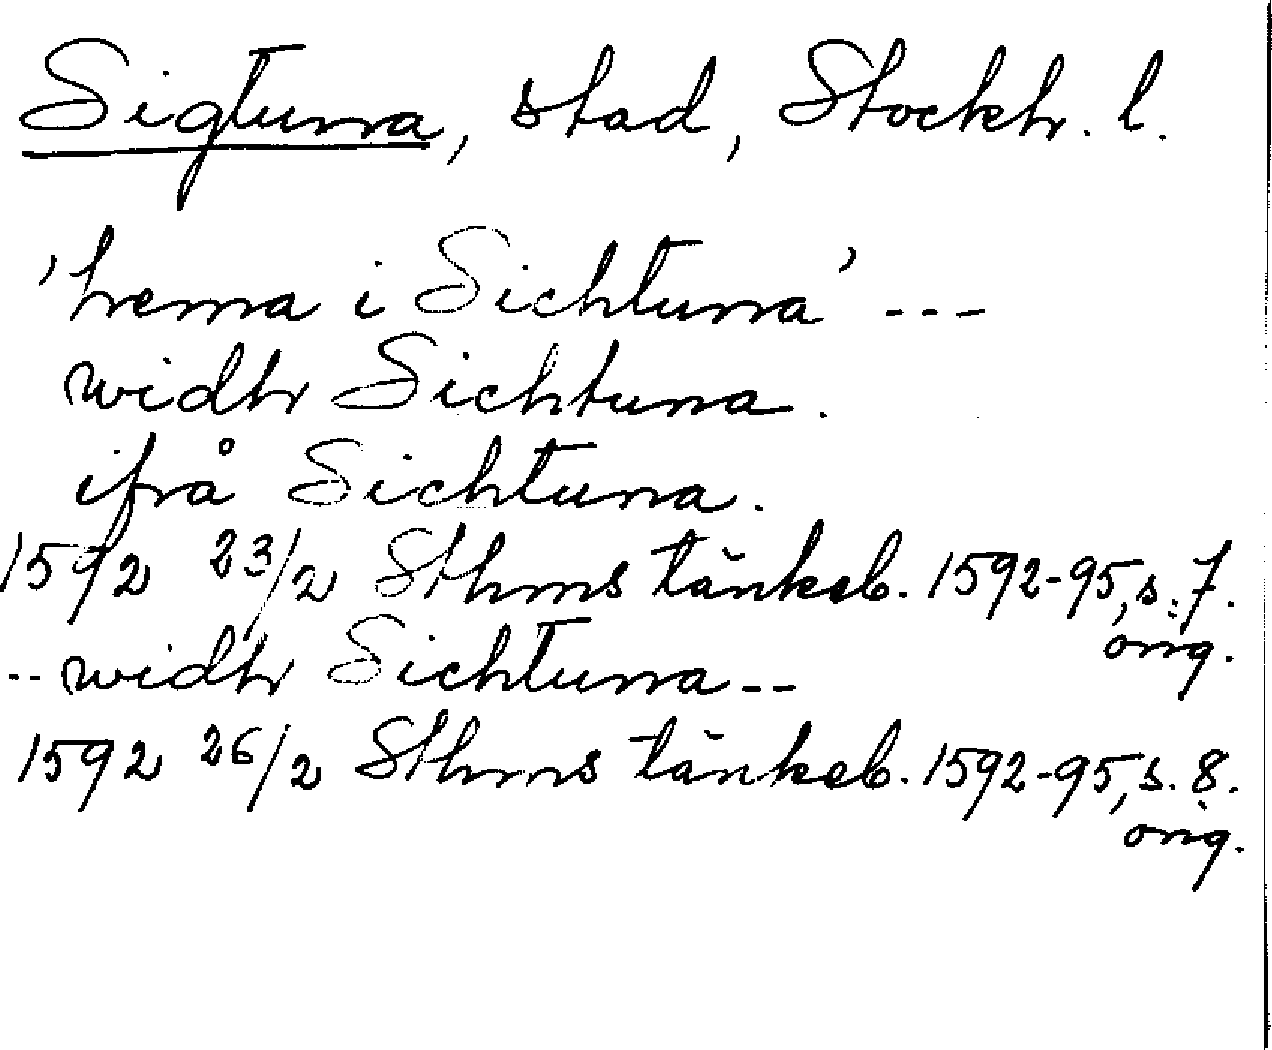 Sigtuna, stad, Stockh. l.
'hema i Sichtuna' ---
widh Sichtuna.
ifrå Sichtuna.
1592 23/2 Sthms tänkeb. 1592-95, s. 7.
orig.
-- widh Sichtuna --
1592 26/2 Sthms tänkeb. 1592-95, s. 8.
orig.